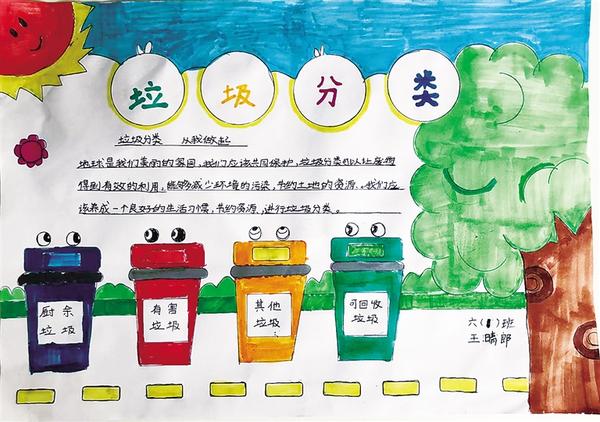 垃圾分类
垃圾分类 从我做起
地球是我们美丽的家园，我们应该共同保护，垃圾分类可以让废物
得到有效的利用，能够减少环境的污染，节约土地的资源。我们应
该养成一个良好的生活习惯，节约资源，进行垃圾分类。
厨余
垃圾
有害
垃圾
其他
垃圾
可回收
垃圾
六(1)班
王晴郎